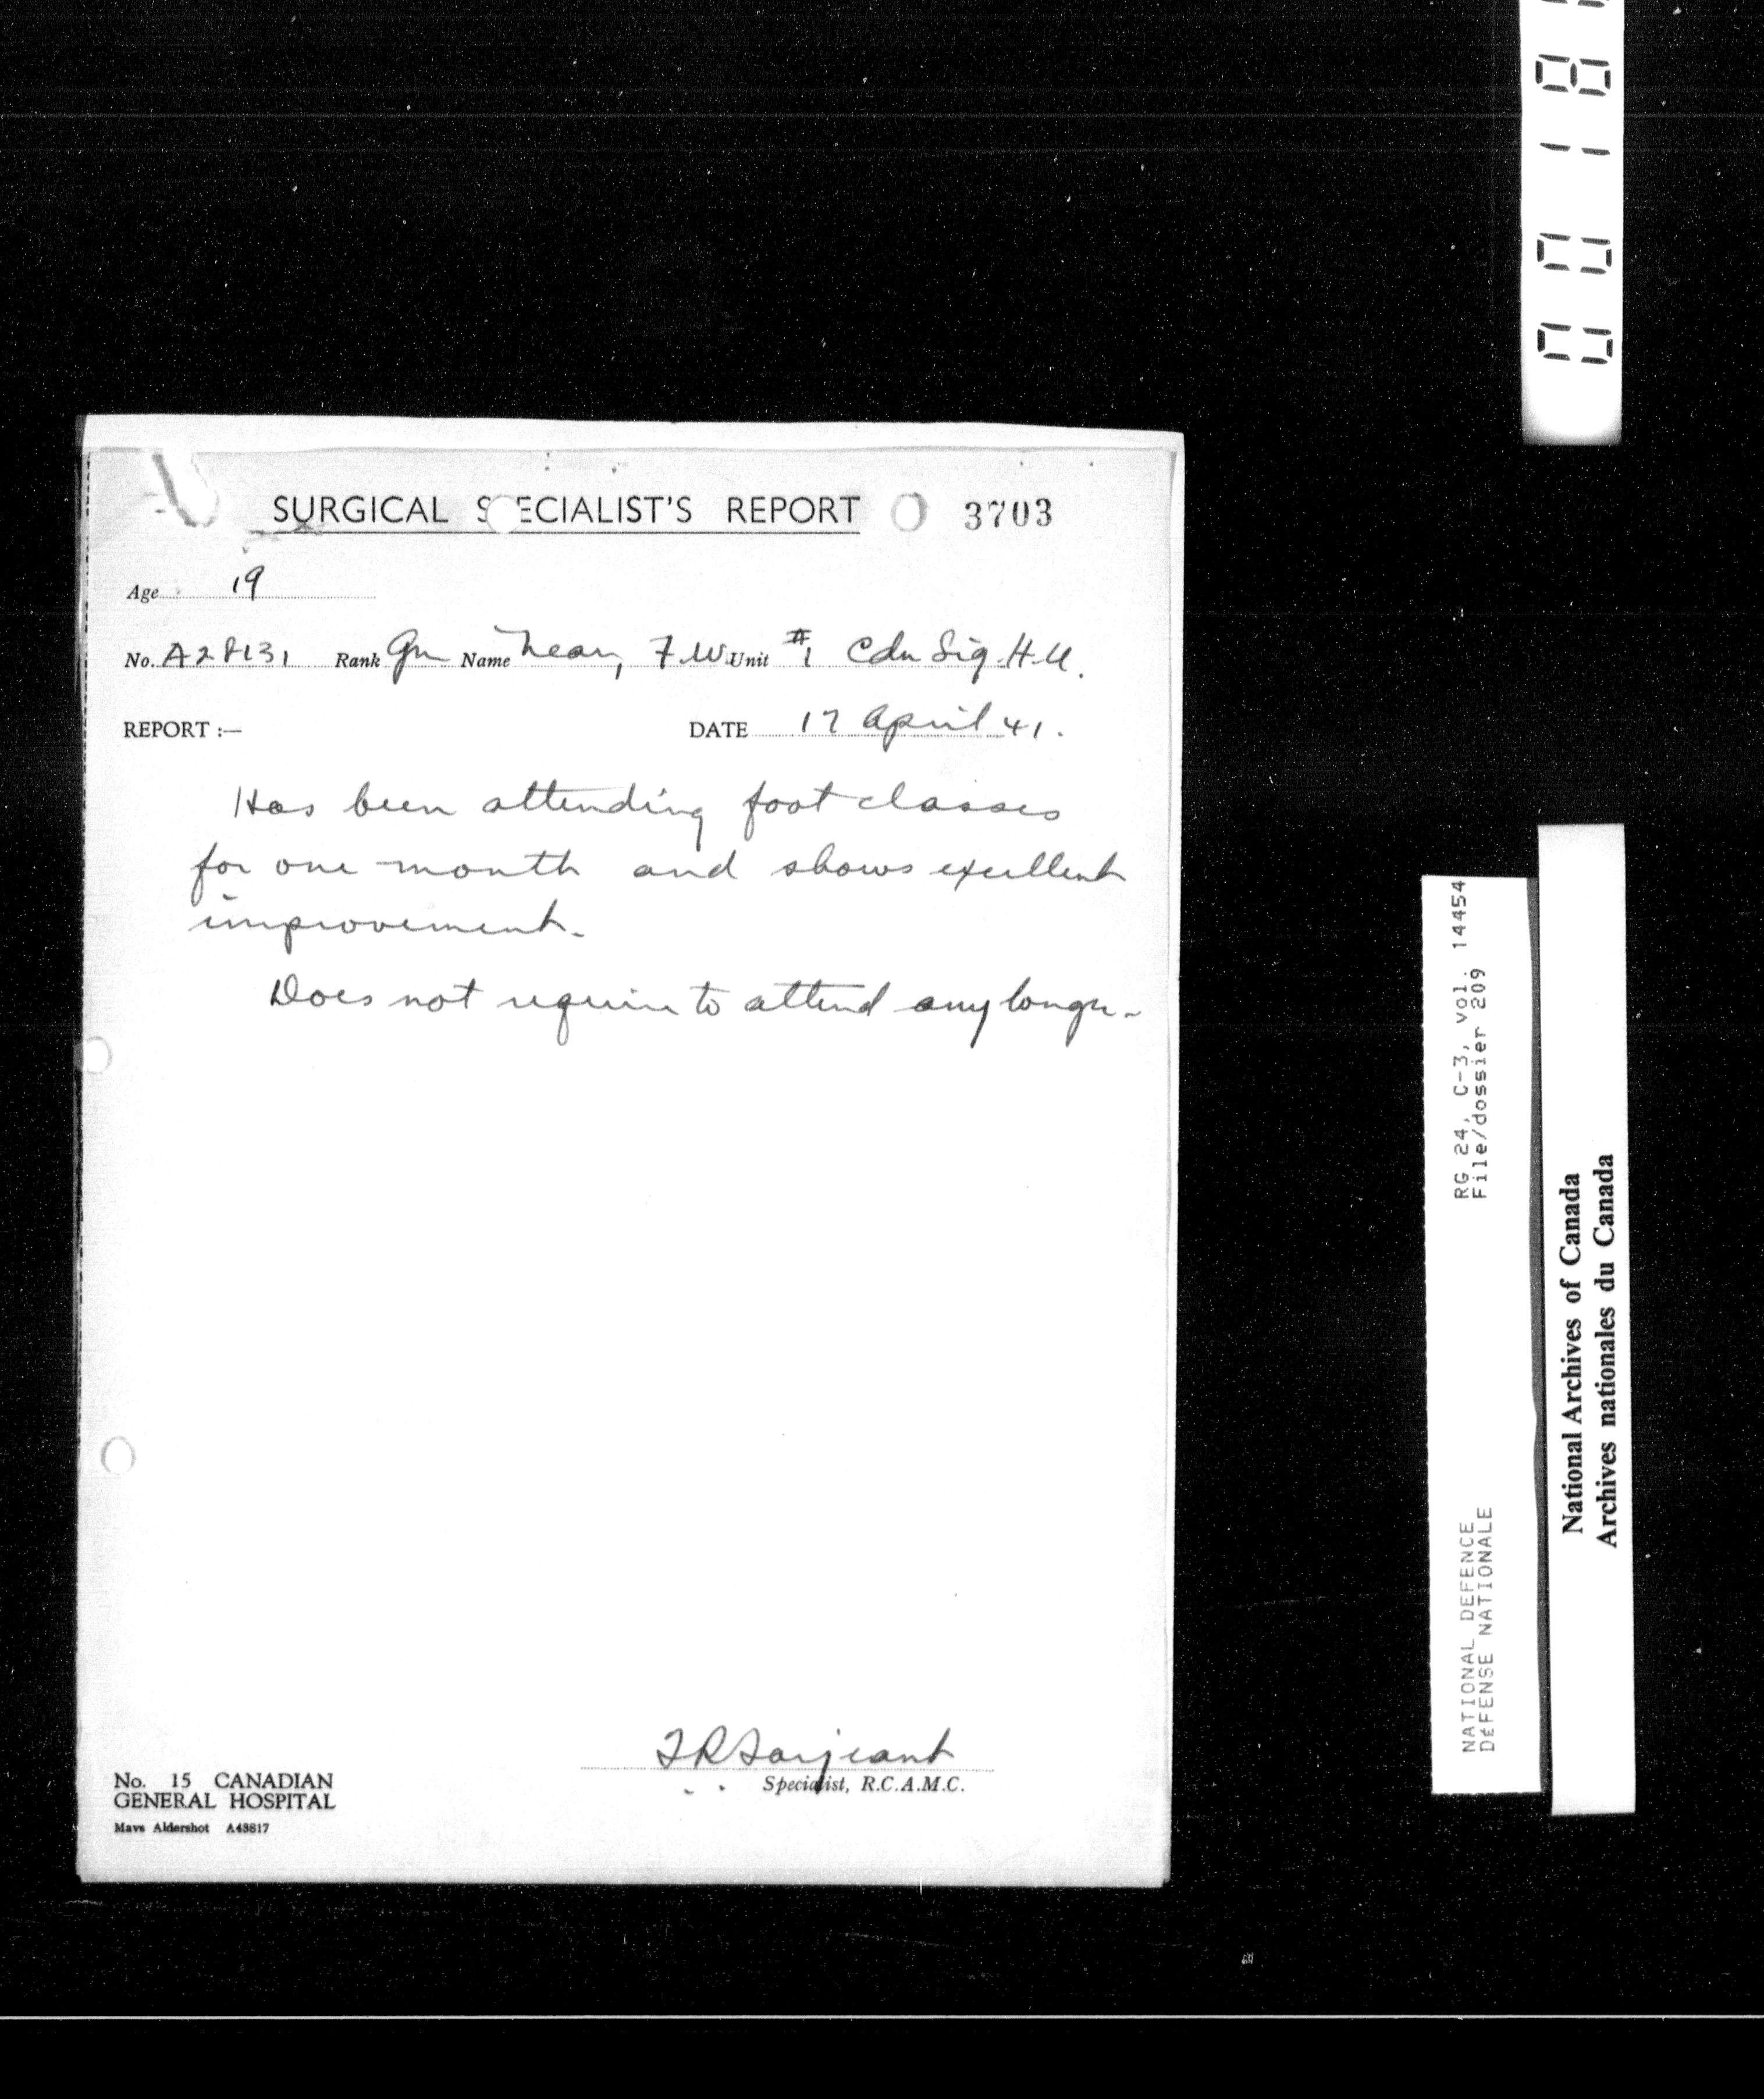 SURGICAL SPECIALIST'S REPORT 3703
Age 19
No. A28131 Rank Gnr Name Near, F.W. Unit #1 Cdn Sig. H.U.
REPORT :— DATE 17 April 41.
Has been attending foot classes
for one month and shows excellent
improvement.
Does not require to attend any longer.
No. 15 CANADIAN
GENERAL HOSPITAL
Mavs Aldershot A43817
Specialist, R.C.A.M.C.
RG 24, C-3, vol. 14454
File/dossier 209
NATIONAL DEFENCE
DÉFENSE NATIONALE
National Archives of Canada
Archives nationales du Canada